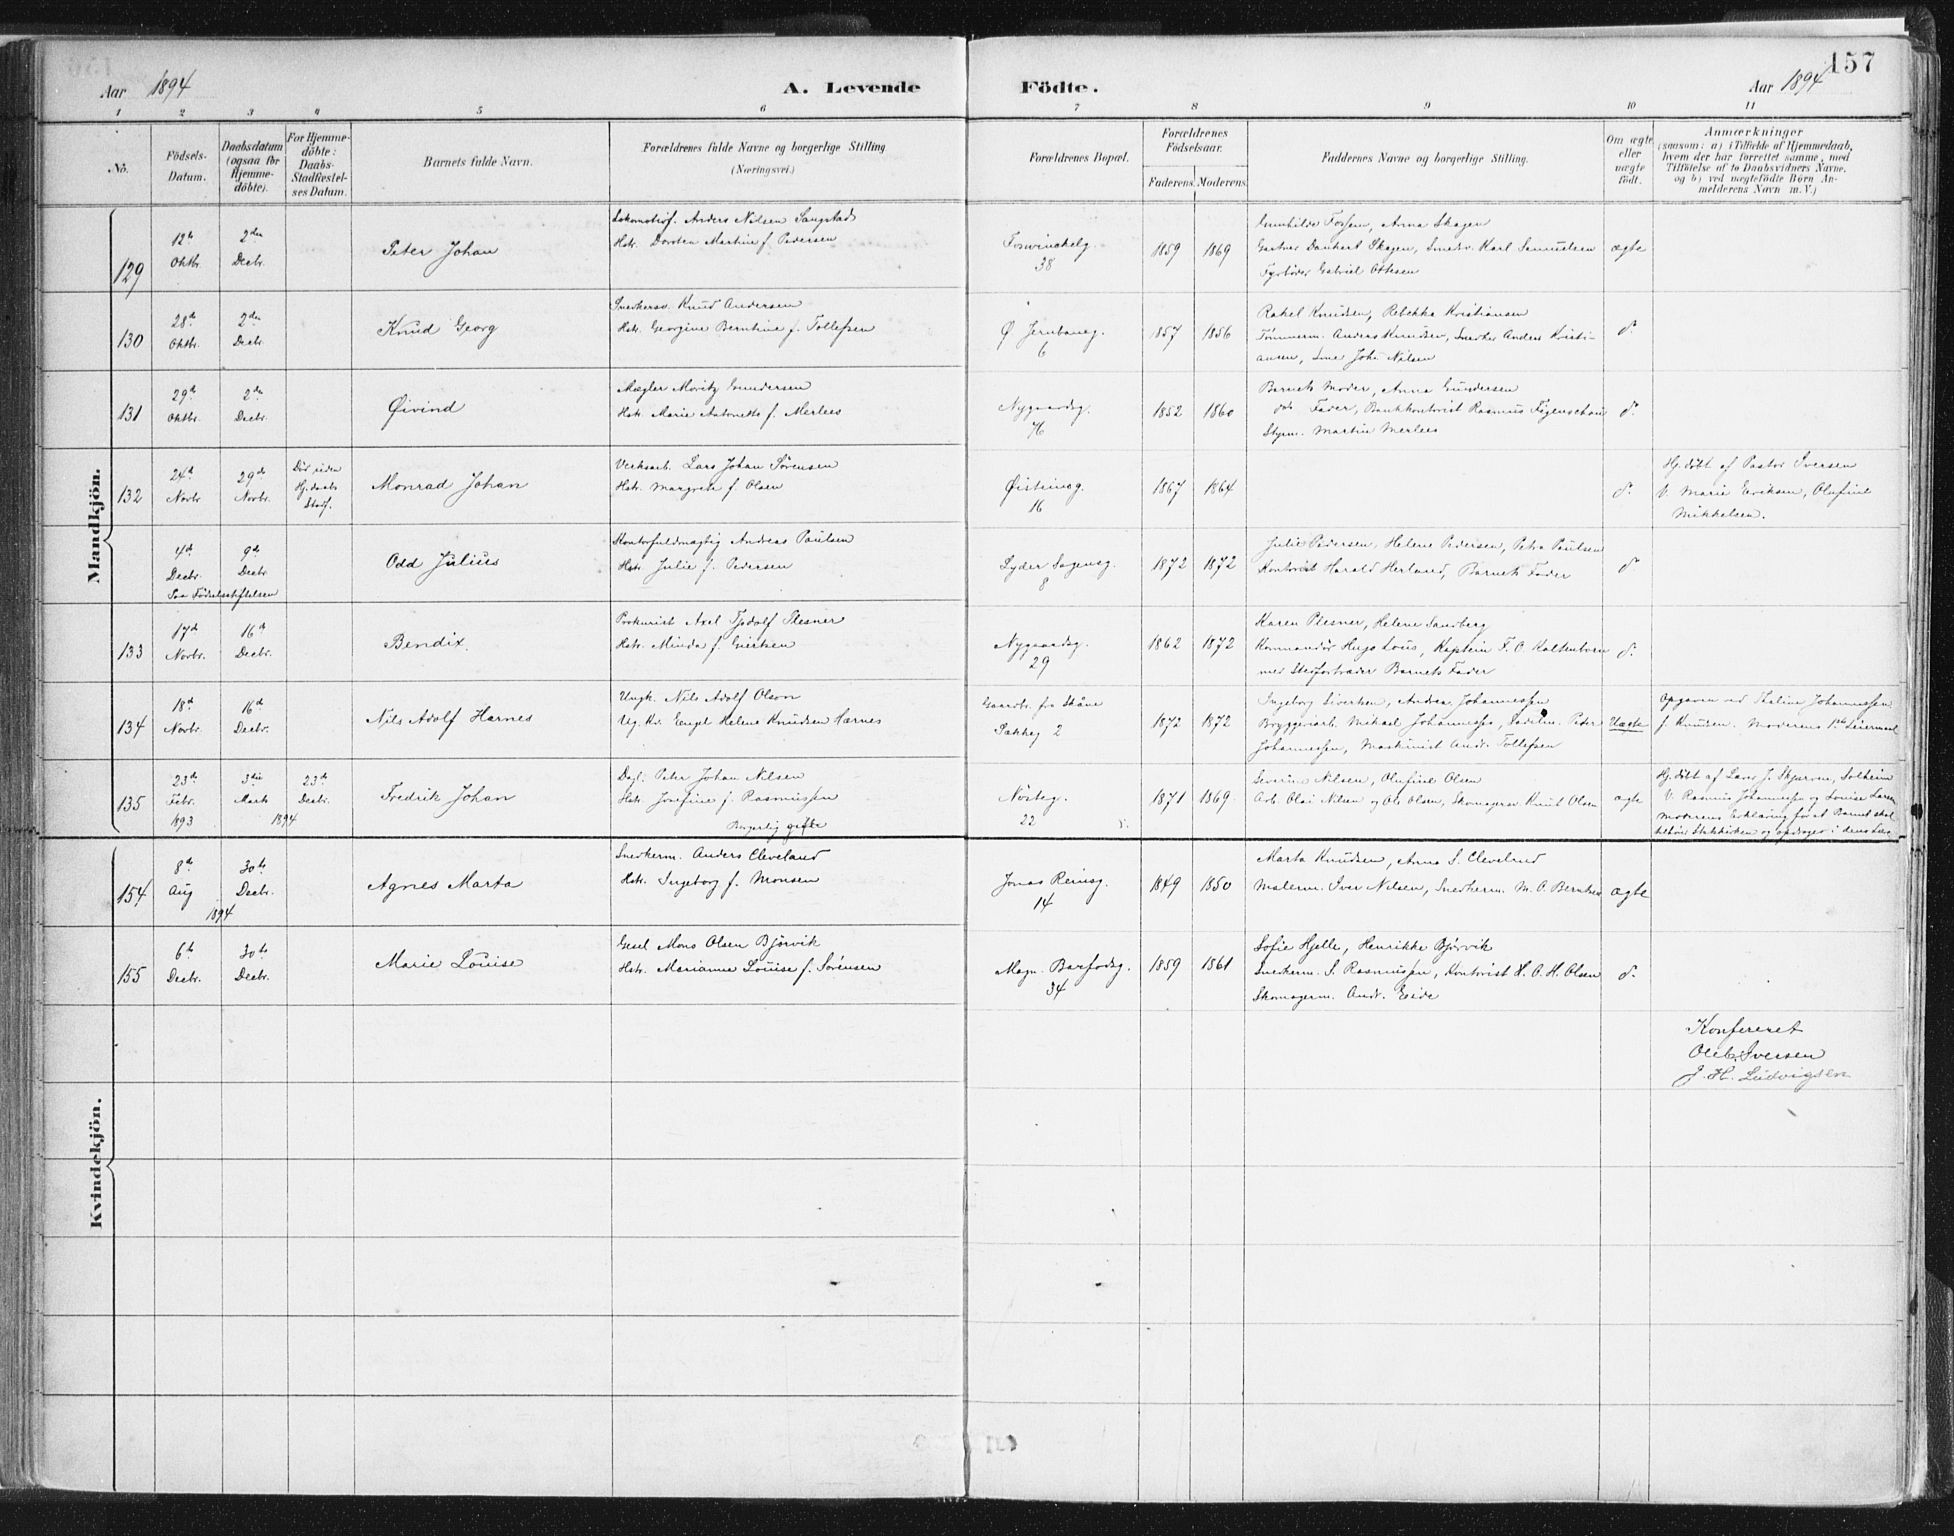 157
Aar 1894
A. Levende
Födte.
Aar 1894
1 2 3 4 5 6 7 8 9 10 11
No.
Födsels-
Datum.
Daabsdatum
(ogsaa for
Hjemme-
döbte).
For Hjemme-
döbte:
Daabs-
Stadfæstel-
ses Datum.
Barnets fulde Navn.
Forældrenes fulde Navne og borgerlige Stilling
(Næringsvei.)
Forældrenes Bopæl.
Forældrenes
Födselsaar.
Faderens. Moderens.
Faddernes Navne og borgerlige Stilling.
Om ægte
eller
uægte
födt.
Anmærkninger
(saasom: a) i Tilfælde af Hjemmedaab,
hvem der har forrettet samme, med
Tilföielse af to Daabsvidners Navne,
og b) ved uægtefödte Börn An-
melderens Navn m. V.)
Mandkjön.
129
12te Oktbr.
2den Decbr.
Peter Johan
Lokomotivf. Anders Nilsen Sangstad
Hstr. Dorotea Martine f. Pedersen
38
1859 1869
Gunhilde Fossen, Anna Skagen
Gartner Dankert Skagen, Smedsv. Karl Samuelsen
Fyrböder Gabriel Ottesen
ægte
130
28de Oktbr.
2den Decbr.
Knud Georg
Snedkersv. Knud Andersen
Hstr. Georgine Berntine f. Tollefsen
Ø Jernbaneg.
6
1857 1856
Rakel Knudsen, Rebekka Kristiansen
Tömmerm. Anders Knudsen, Snedker Anders Kristi-
ansen, Smed Joh. Nilsen
do
131
29de Oktbr.
2den Decbr.
Øivind
Mægler Moritz Gundersen
Hstr. Marie Antonette f. Merlees
Nygaardsg.
76
1852 1860
Barnets Moder, Anna Gundersen
Fader, Bankkontorist Rasmus Fägenschou
Styrm. Martin Merlees
do
132
24de Novbr.
29de Novbr.
Död uden
Hj. daabs
Stadf.
Monrad Johan
Verksarb. Lars Johan Sörensen
Hstr. Margrete f. Olsen
Øisteinsg.
16
1867 1864
do
Hj. döbt af Pastor Iversen
V. Marie Eriksen, Olufine
Mikkelsen.
4de Decbr.
9de Decbr.
Paa Födselsstiftelsen
Odd Julius
Kontorfuldmægtig Andreas Paulsen
Hstr. Julie f. Pedersen
Lyder Sagensg.
8
1872 1872
Julie Pedersen, Helene Pedersen, Petra Paulsen
Kontorist Harald Herland, Barnets Fader
do
133
17de Novbr.
16de Decbr.
Bendix.
Prokurist Axel Tjodolf Plesner
Hstr. Minda f. Eirksen
Nygaardsg.
29
1862 1872
Karen Plesner, Helene Sandberg
Kommandör Hugo Lous, Kaptein F. C. Kaltenborn
med Stedfortræder Barnets Fader
do
134
18de Novbr.
16de Decbr.
Nils Adolf Harnes
Ungk. Nils Adolf Olson
Ug. Kv. Engel Helene Knudsen Harnes
Gaardbr. fra Skåne
Sækkeg 2
1872 1872
Ingeborg Sivertsen, Andrea Johannessen
Bryggeriarb. Mikael Johannessen, Sadelm. Peder
Johannessen, Maskinist Andr. Tollefsen
Uægte
Opgaven ved Thaline Johannessen
f. Knudsen. Moderens 1ste Leiermaal
135
23de Febr. 1893
3die Marts
23de Decbr.
1894
Fredrik Johan
Dagl. Peter Johan Nilsen
Hstr. Josefine f. Rasmussen
Borgerlig gifte
Nösteg.
22
1871 1869
Severine Nilsen, Olufine Olsen
Arb. Olai Nilsen og Ole Olsen, Skomagersv Knut Olsen
ægte
Hj. döbt af Lars J. Skjerven, Solheim
V. Rasmus Johannessen og Louise Larsen
Moderens Erklæring for at Barnet skal
tilhöre Statskirken og opdrages i dens Lære
Kvindekjön.
154
8de Aug
30te Decbr.
1894
Agnes Marta
Snedkerm. Anders Cleveland
Hstr. Ingeborg f. Monsen
Jonas Reinsg.
14
1849 1850
Marta Knudsen, Anna S. Cleveland
Malerm. Iver Nilsen, Snedkerm. M. A. Berntsen
ægte
155
6te Decbr.
30te Decbr.
Marie Louise
Gesel Mons Olsen Bjørvik
Hstr. Marianne Louise f. Sörensen
Magn. Barfodsg.
34
1859 1861
Sofie Hjelle, Henrikke Bjørvik
Snedkerm. S. Rasmussen, Kontorist H. O. H. Olsen
Skomagerm. Andr. Eide
do
Konfereret
Ole B. Iversen
J. H. Ludvigsen